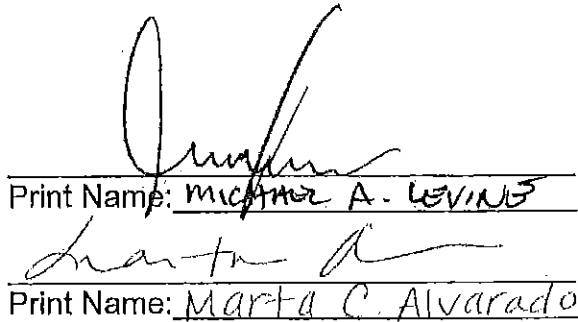 Print Name: MICHAEL A. LEVINE
Marta A
Print Name: Marta C. Alvarado